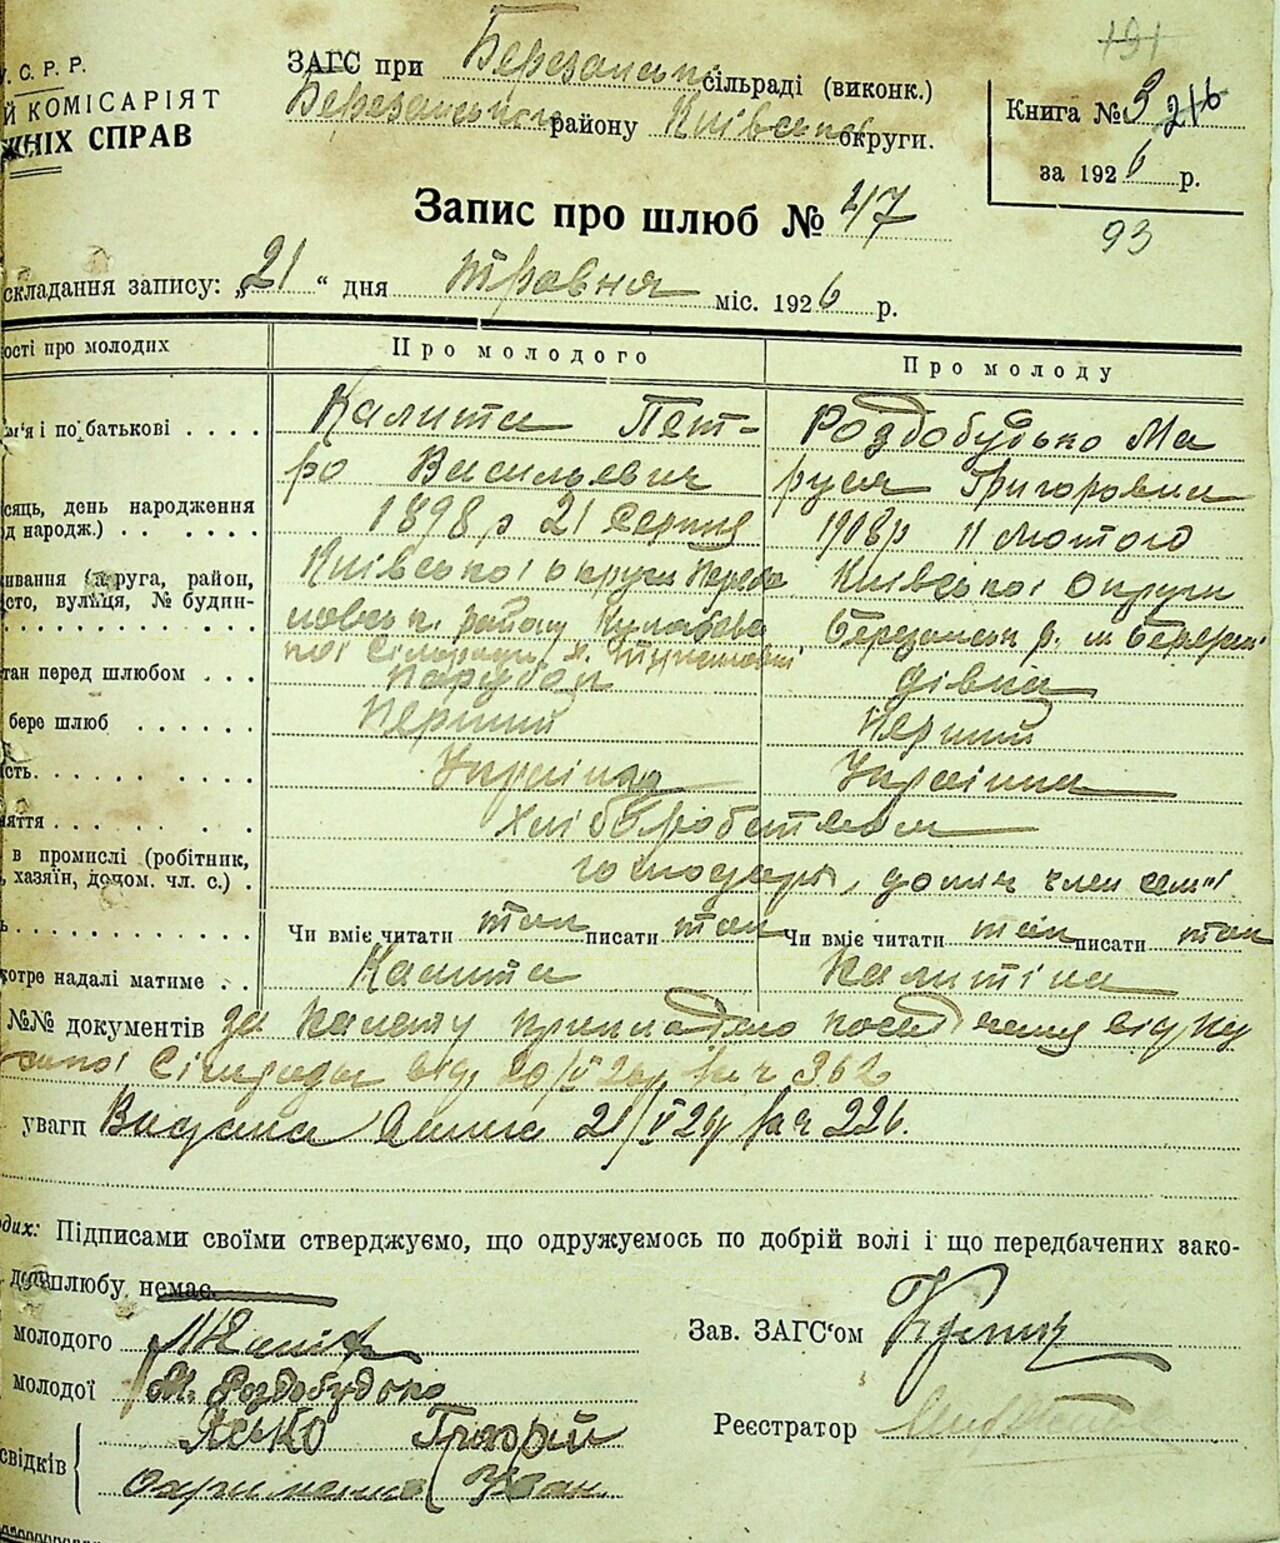 У. С. Р. Р.
Й КОМІСАРІЯТ
СПРАВ
ЗАГС при Березанськ. сільраді (виконк.)
Березанського району Київської округи.
191
Книга № 3 216
за 1926 р.
93
Запис про шлюб № 47
складання запису: „21“ дня травня міс. 1926 р.
ості про молодих
Про молодого
Про молоду
м'я і по батькові . . . .
Калита Пет-
ро Васильевич
Роздобудько Ма
руся Григоровна
сяць, день народження
д народж.) . . . . . .
1898 р 21 серпня
1908 р 11 Лютого
ивання (округа, район,
сто, вулиця, № будин-
Київської округи Перея
словськ. району
ної Сільради
Київської Округи
Березанськ р. м Березань
тан перед шлюбом . . .
Парубок
дівка
бере шлюб . . . . . .
Перший
Перший
сть. . . . . . . . . .
Українец
Українка
няття . . . . . . . .
Хліборобством
в промислі (робітник,
хазяїн, допом. чл. с.) .
господарь, допом член семьі
Чи вміє читати так писати так
Чи вміє читати так писати так
котре надалі матиме . .
Калита
Калитіна
№№ документів за
сільради від 20/V 26р за ч 362
уваги Видана 21/V 26р за ч 226.
одих: Підписами своїми стверджуємо, що одружуємось по добрій волі і що передбачених зако-
для шлюбу немає.
молодого
молодої М. Роздобудько
свідків
Ясько Григорій
Охрименко Іван
Зав. ЗАГС'ом
Реєстратор